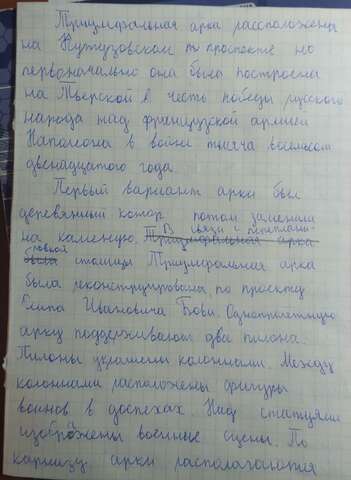 Триумфальная арка рассположена
на Кутузовском проспекте но
первоначально она была построена
на Тверской в честь победы русского
народа над французской армией
Наполеона в войне тысяча восемсот
двенадцатого года.
Первый вариант арки был
деревянным котор потом заменили
на каменую. Триумфальная арка В связи с перепланировкой
была столицы Триумфальная арка
была реконструированы по проекту
Осипа Ивановича Бови. Однопролётную
арку поддерживают два пилона.
Пилоны украшены колоннами. Между
колоннами расположены фигуры
воинов в доспехах. Над статуями
изображены военные сцены. По
карнизу арки располагаются